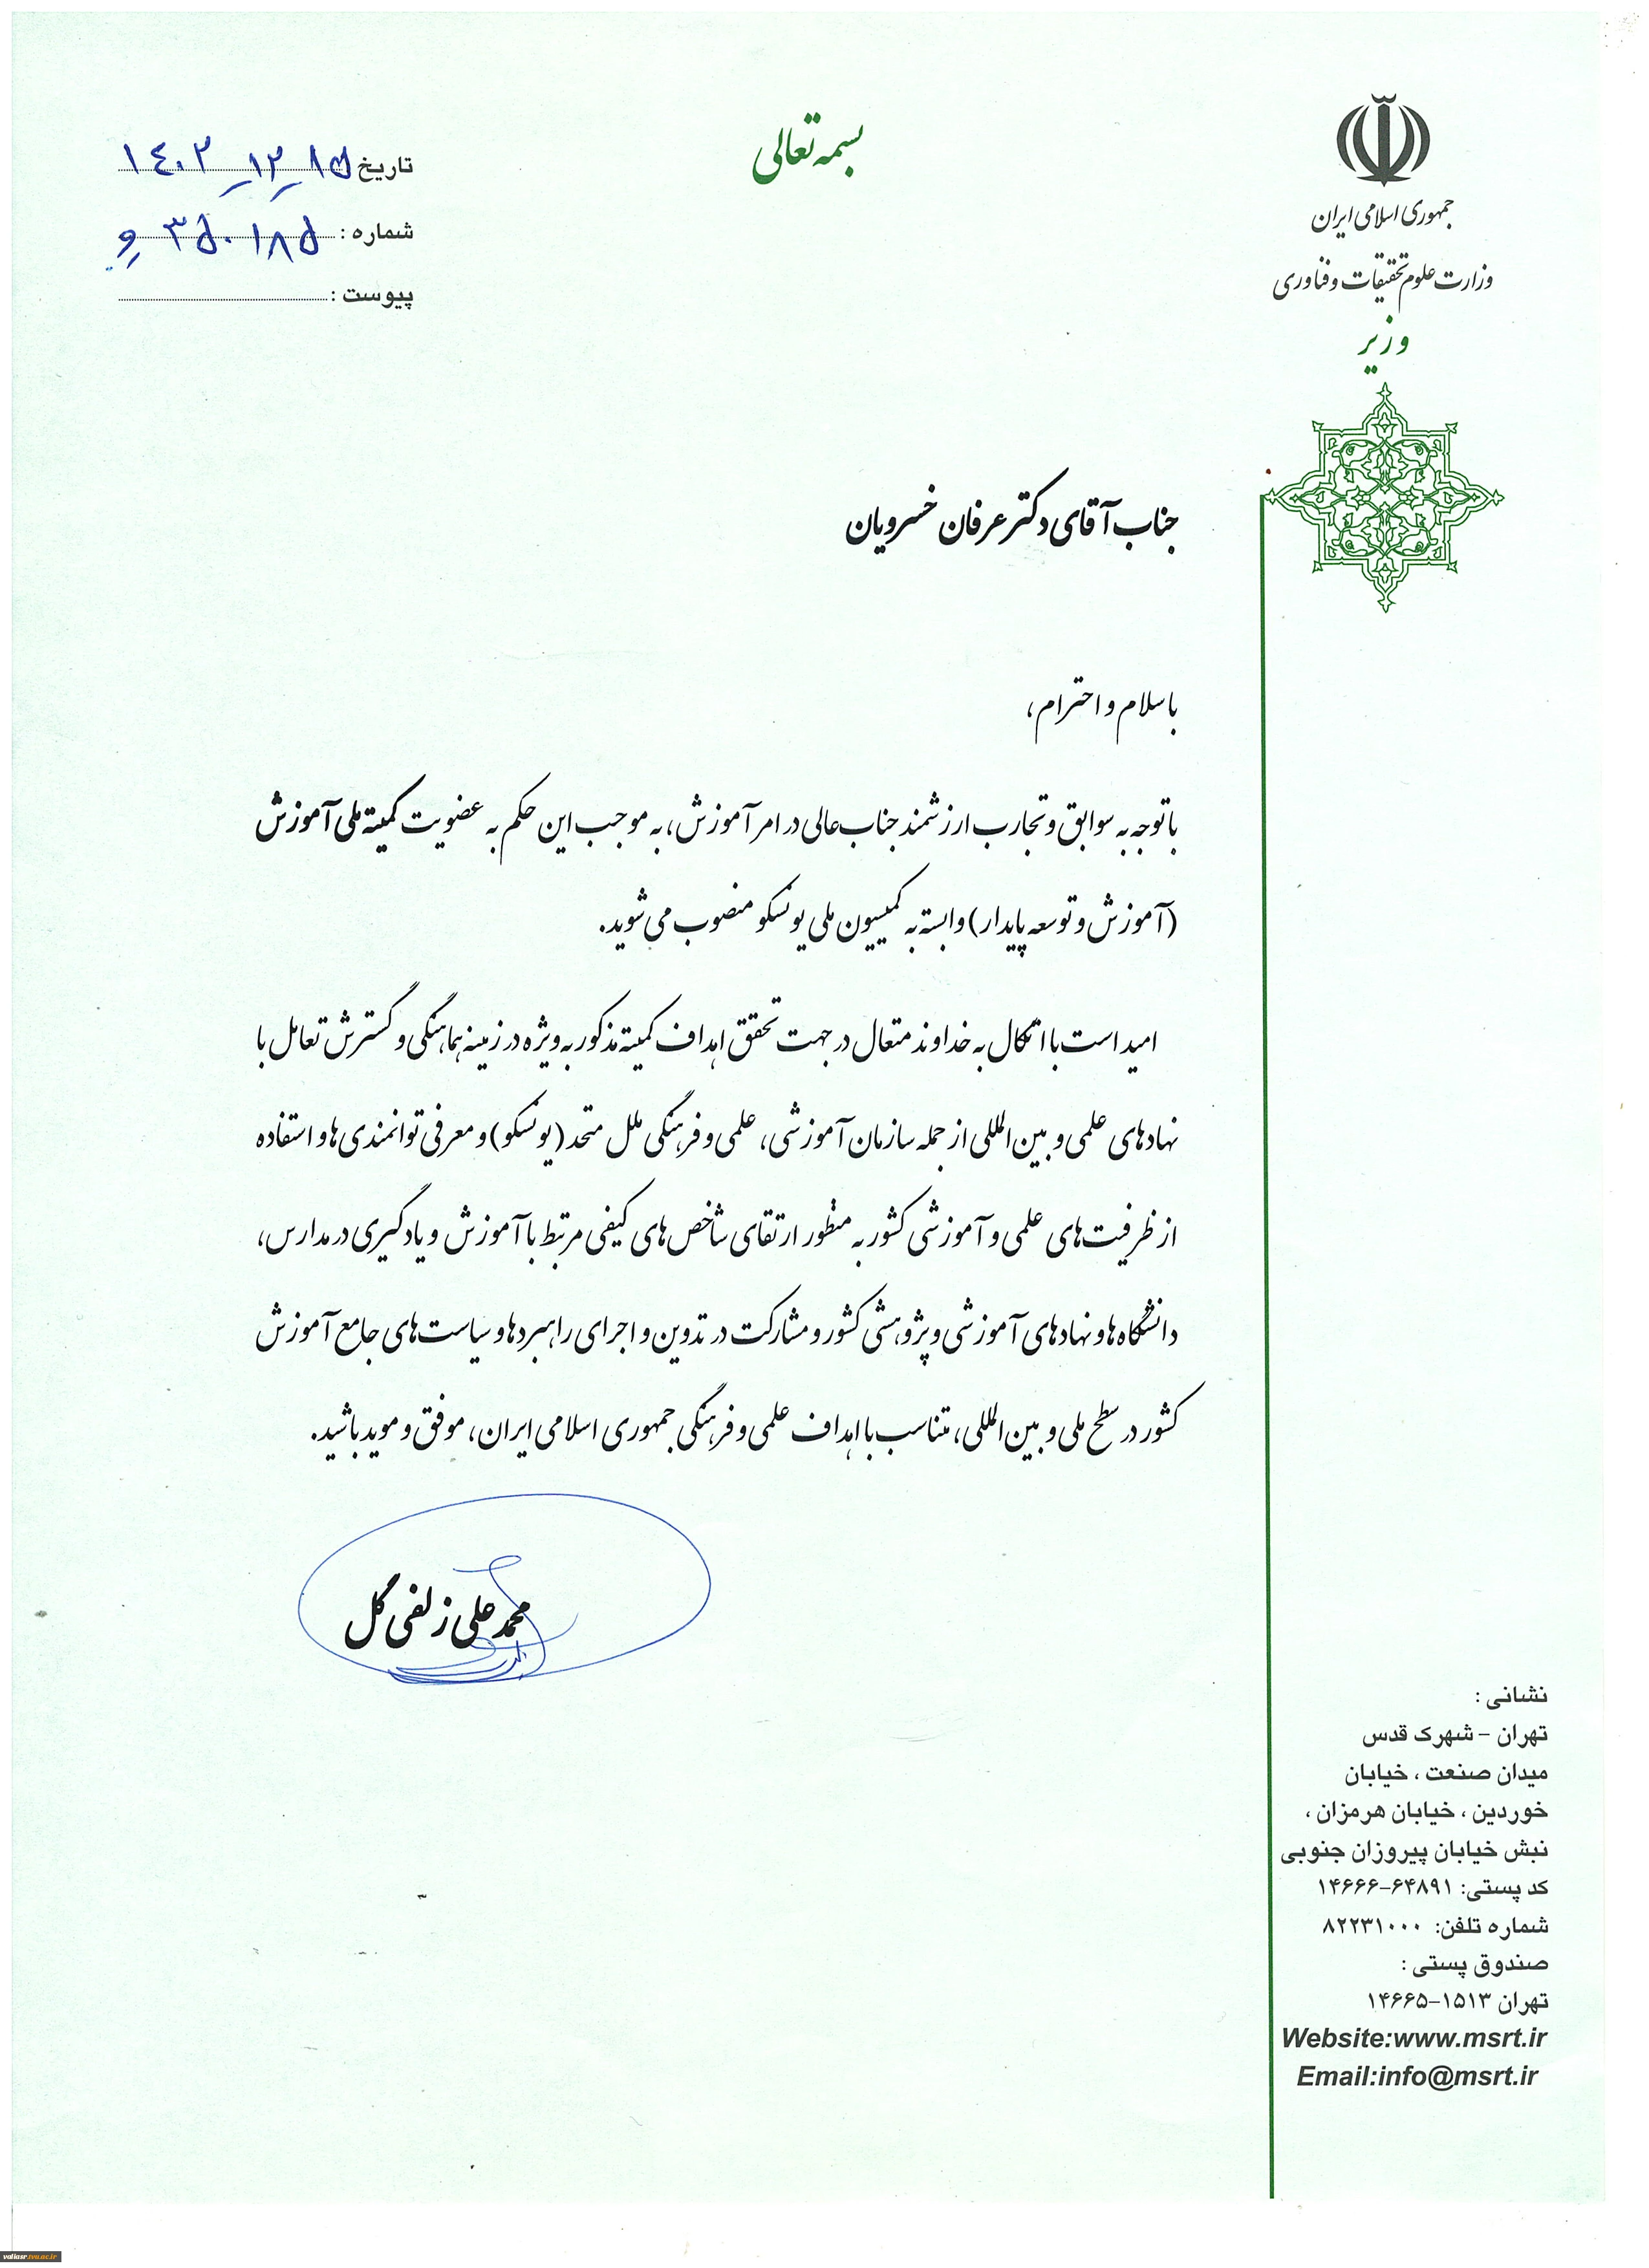 بسمه تعالی
جمهوری اسلامی ایران
وزارت علوم تحقیقات و فناوری
وزیر
تاریخ ۱۴۰۲-۱۲-۱۵
شماره : ۳۵۰۱۸۵ و
پیوست :
جناب آقای دکتر عرفان خسرویان
با سلام و احترام،
با توجه به سوابق و تجارب ارزشمند جناب‌عالی در امر آموزش، به موجب این حکم به عضویت کمیته ملی آموزش
(آموزش و توسعه پایدار) وابسته به کمیسیون ملی یونسکو منصوب می‌شوید.
امید است با اتکال به خداوند متعال در جهت تحقق اهداف کمیته مذکور به ویژه در زمینه هماهنگی و گسترش تعامل با
نهادهای علمی و بین‌المللی از جمله سازمان آموزشی، علمی و فرهنگی ملل متحد (یونسکو) و معرفی توانمندی‌ها و استفاده
از ظرفیت‌های علمی و آموزشی کشور به منظور ارتقای شاخص‌های کیفی مرتبط با آموزش و یادگیری در مدارس،
دانشگاه‌ها و نهادهای آموزشی و پژوهشی کشور و مشارکت در تدوین و اجرای راهبردها و سیاست‌های جامع آموزش
کشور در سطح ملی و بین‌المللی، متناسب با اهداف علمی و فرهنگی جمهوری اسلامی ایران، موفق و موید باشید.
محمدعلی زلفی گل
نشانی :
تهران - شهرک قدس
میدان صنعت ، خیابان
خوردین ، خیابان هرمزان ،
نبش خیابان پیروزان جنوبی
کد پستی: ۱۴۶۶۶-۶۴۸۹۱
شماره تلفن: ۸۲۲۳۱۰۰۰
صندوق پستی :
تهران ۱۵۱۳-۱۴۶۶۵
Website:www.msrt.ir
Email:info@msrt.ir
valiasr.tvu.ac.ir